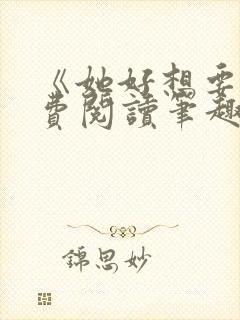 《她好想要
費閱讀筆趣
錦思妙